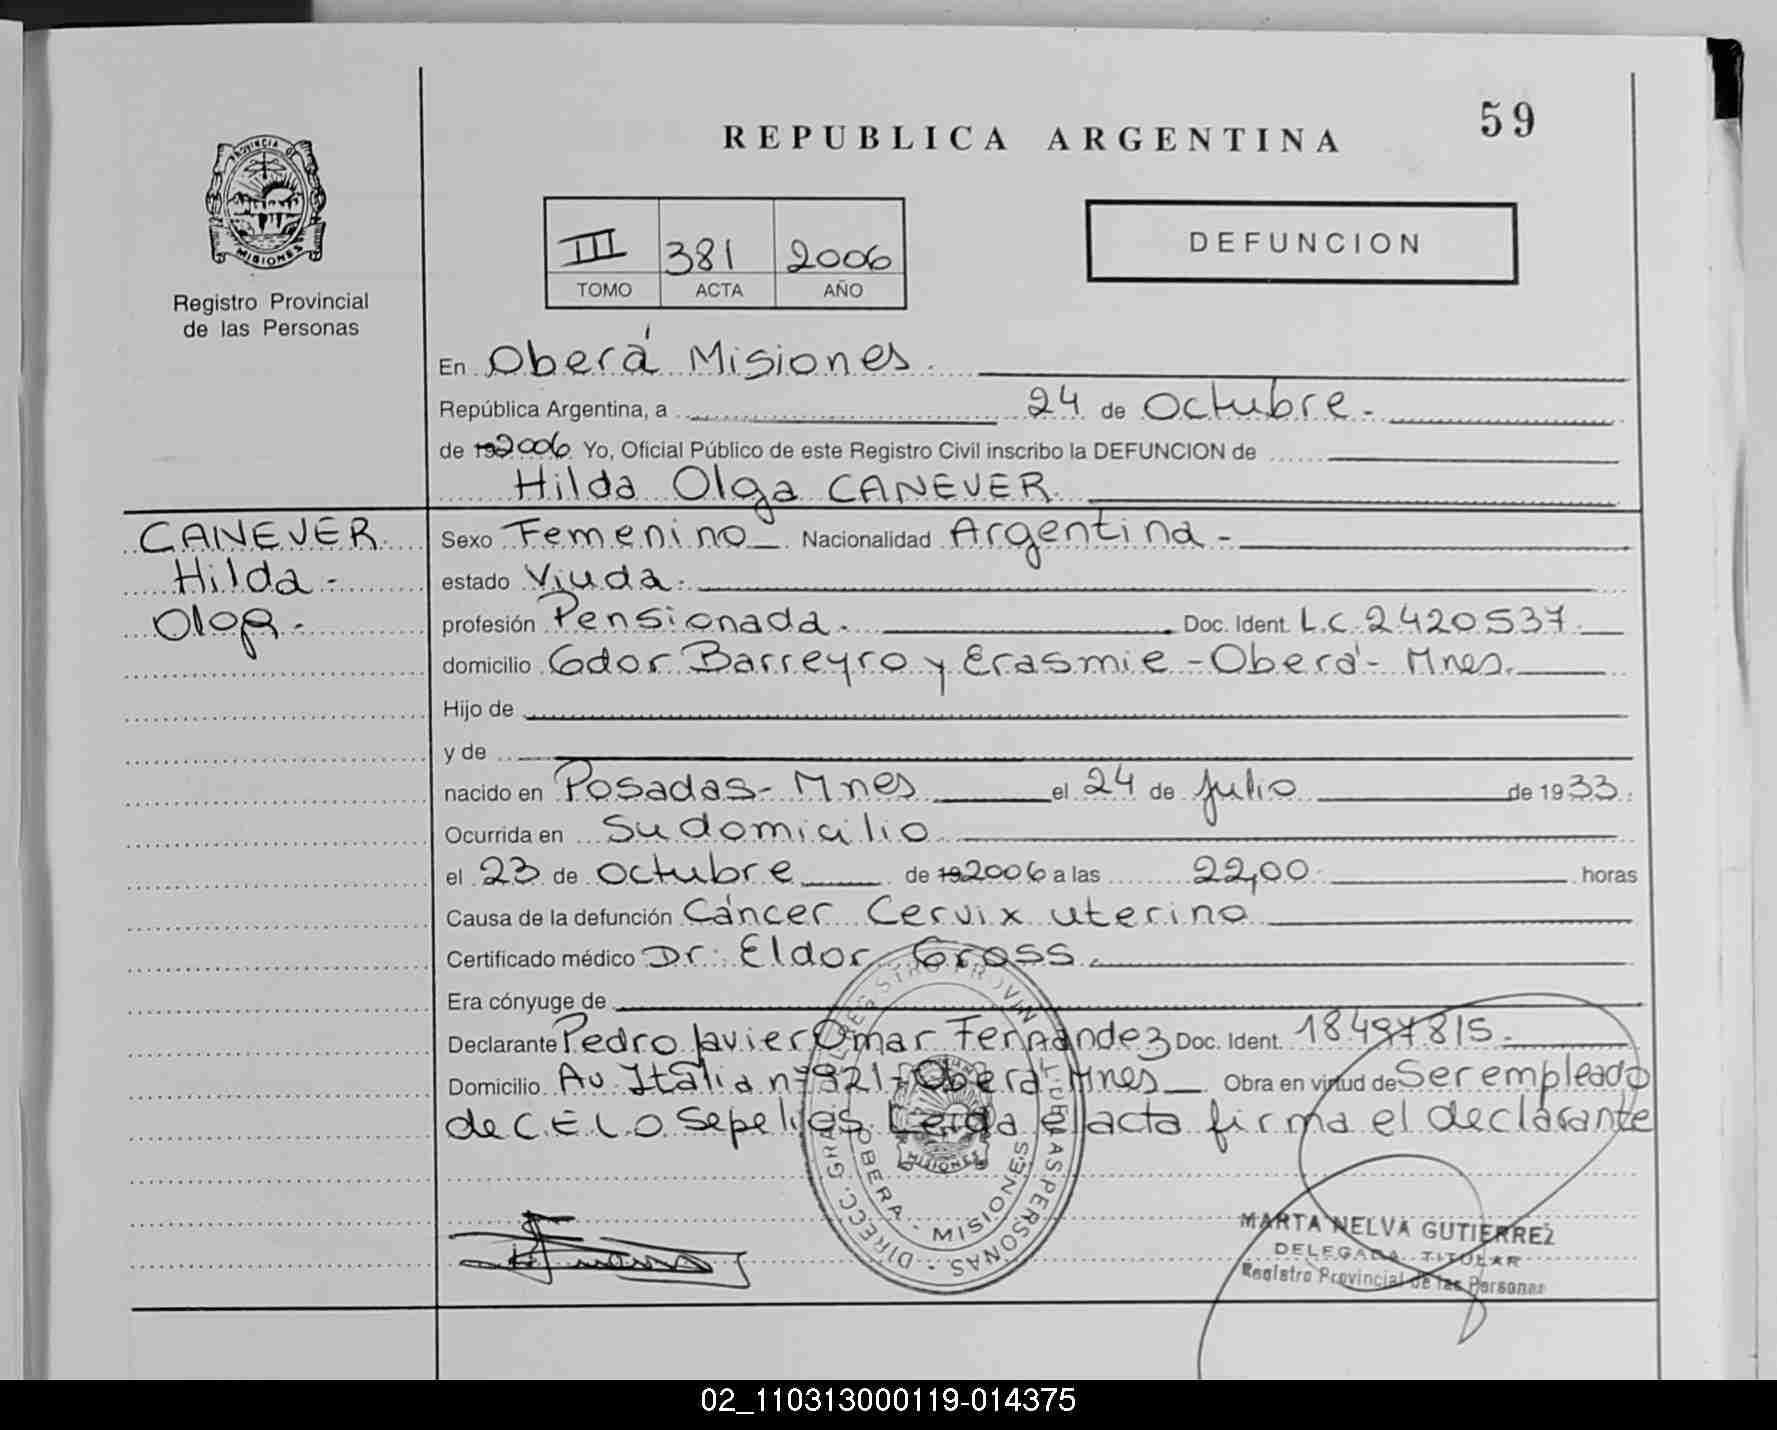 59
REPUBLICA ARGENTINA
PROVINCIA DE
MISIONES
Registro Provincial
de las Personas
III 381 2006
TOMO ACTA AÑO
DEFUNCION
En Oberá Misiones.
República Argentina, a 24 de Octubre.-
de 192006 Yo, Oficial Público de este Registro Civil inscribo la DEFUNCION de
Hilda Olga CANEVER
CANEVER
Hilda.-
Olga.-
Sexo Femenino Nacionalidad Argentina -
estado Viuda.
profesión Pensionada. Doc. Ident. L.C. 2420537.
domicilio Gdor Barreyro y Erasmie - Oberá - Mnes.
Hijo de
y de
nacido en Posadas - Mnes el 24 de Julio de 1933.
Ocurrida en Su domicilio
el 23 de octubre de 192006 a las 22,00 horas
Causa de la defunción Cáncer Cervix uterino
Certificado médico Dr. Eldor Gross.
Era cónyuge de
Declarante Pedro Javier Omar Fernández Doc. Ident. 18497815.-
Domicilio Av. Italia nº 321 - Oberá Mnes Obra en virtud de Ser empleado
de C.E.L.O Sepelios. Leída el acta firma el declarante
DIRECC. GRAL. DEL REGISTRO PROVIN. DE LAS PERSONAS
OBERA - MISIONES
MISIONES
MARTA NELVA GUTIERREZ
DELEGADA TITULAR
Registro Provincial de las Personas
02_110313000119-014375